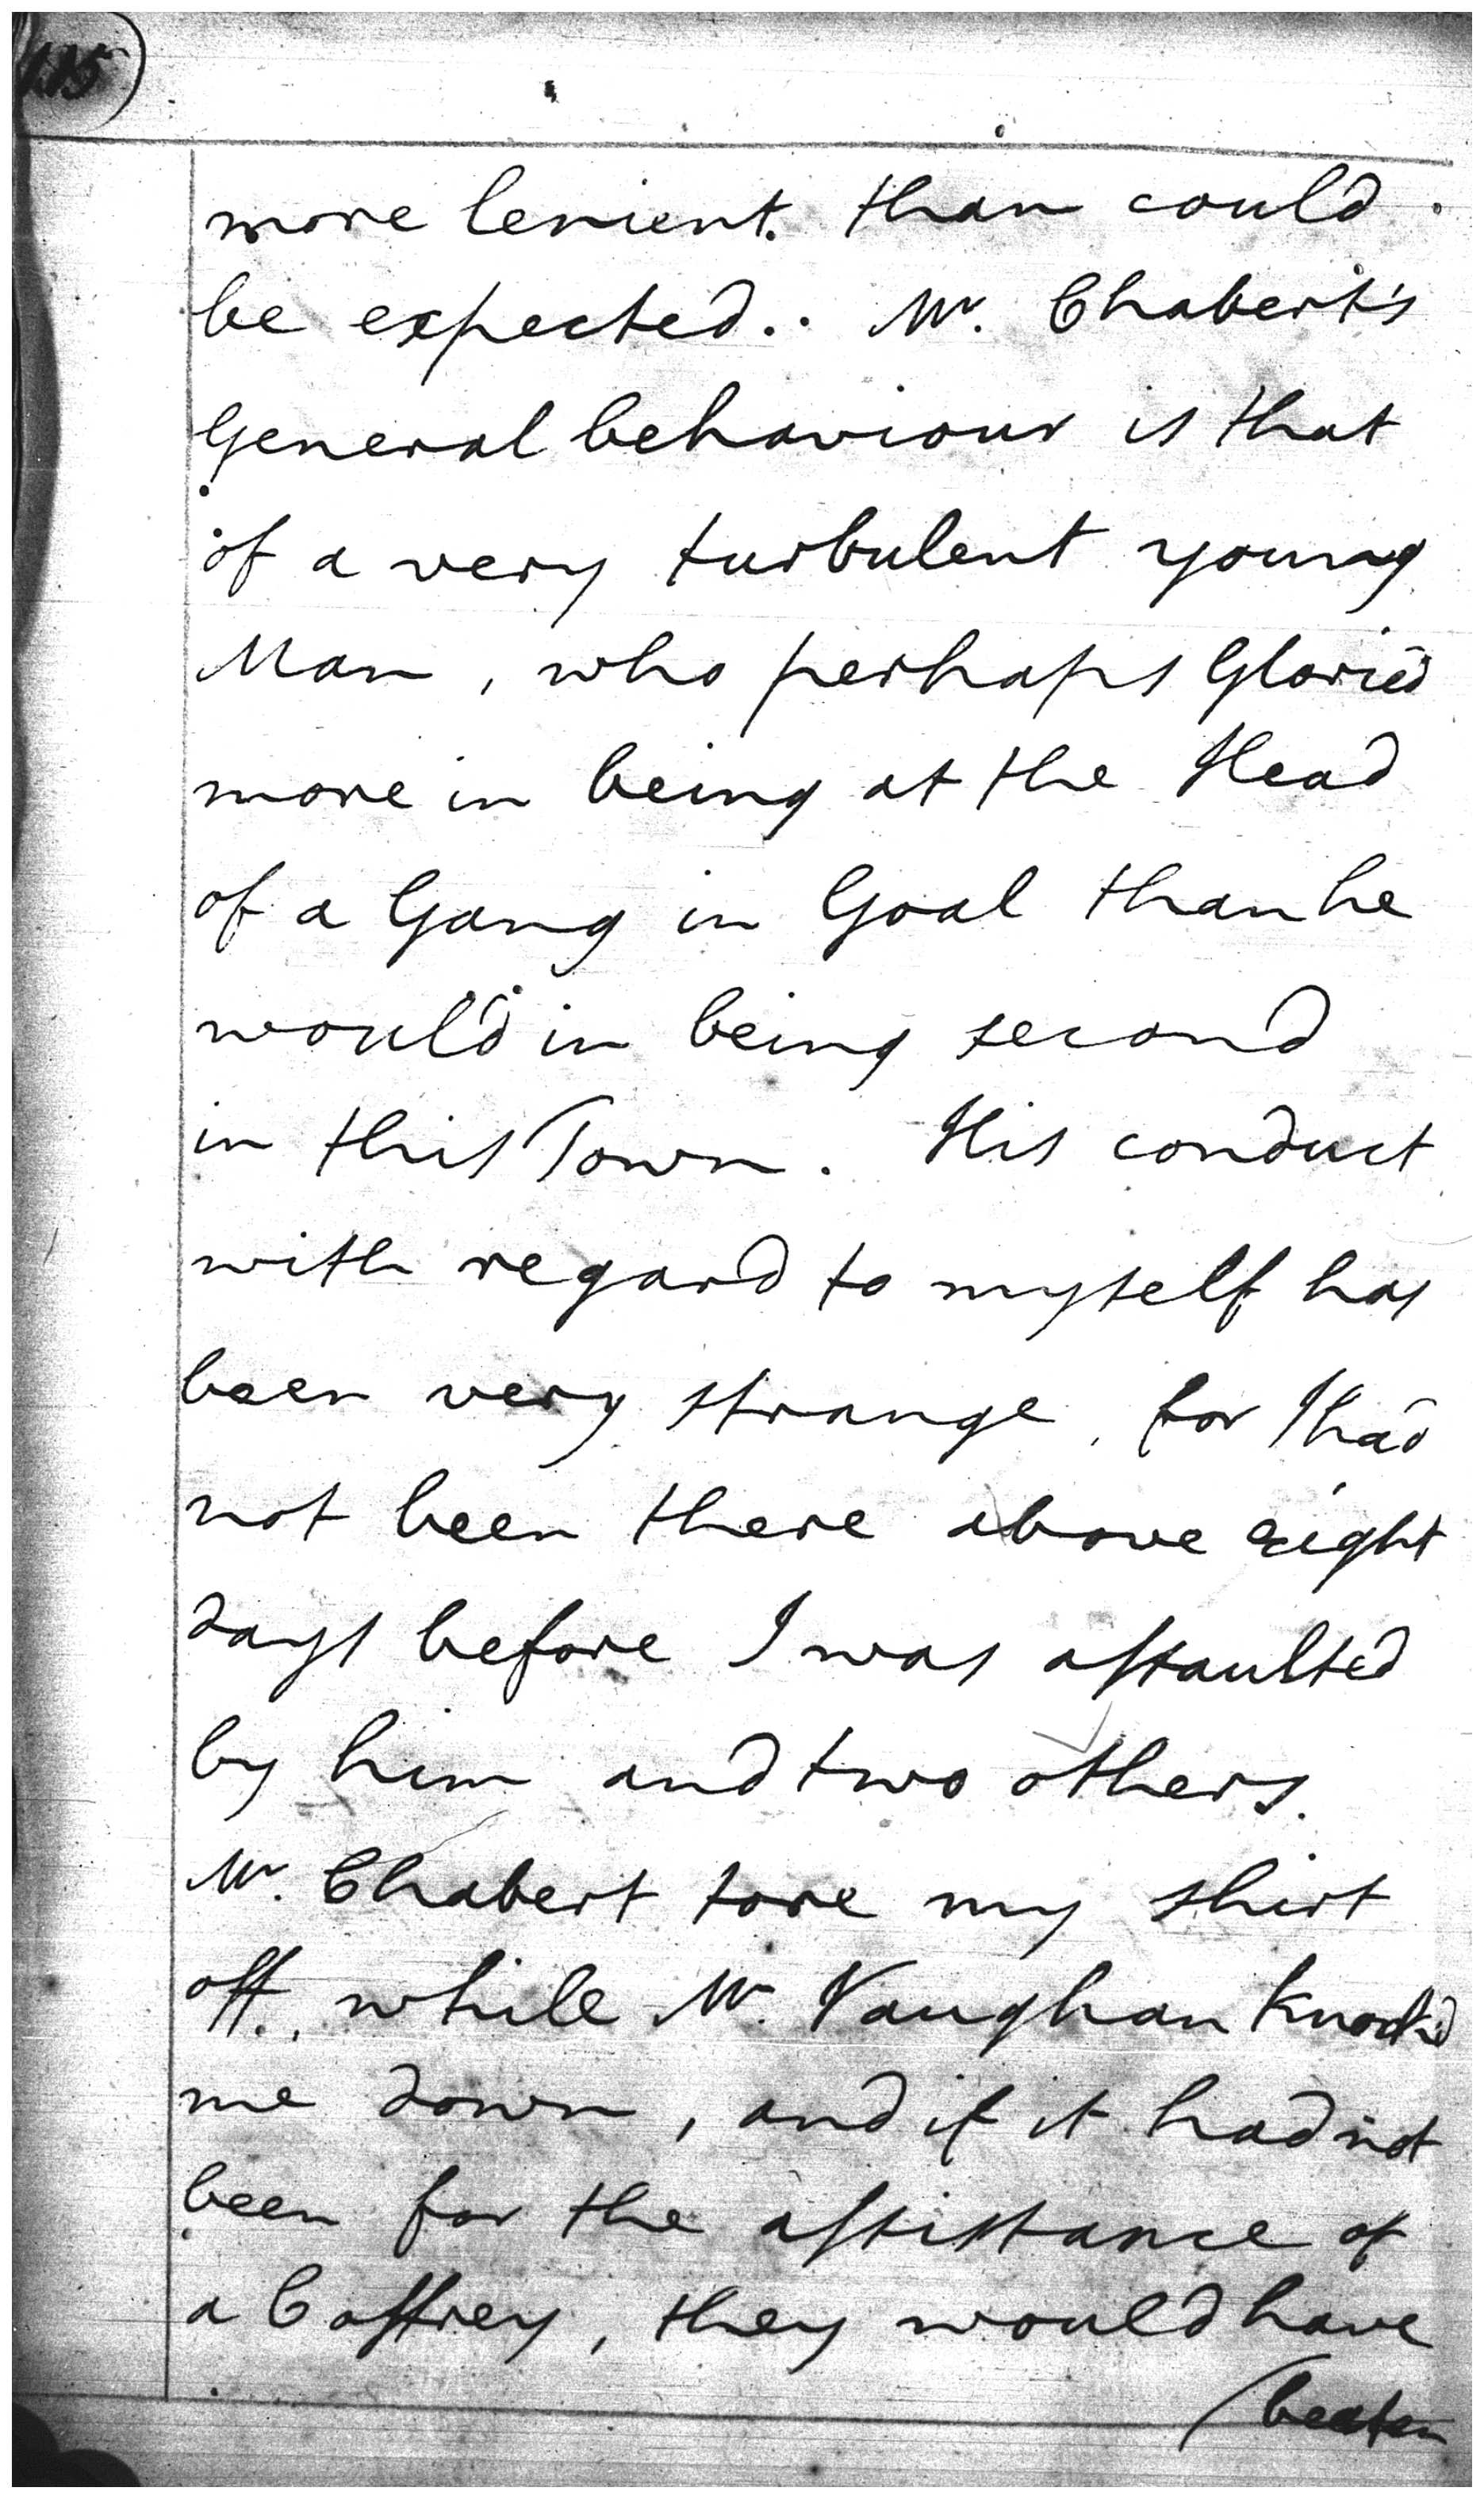 115
more lenient. than could
be expected.. Mr. Chabert's
General behaviour is that
of a very turbulent young
Man, who perhaps Gloried
more in being at the Head
of a Gang in Goal than he
would in being second
in this Town. His conduct
with regard to myself has
been very strange, for I had
not been there above eight
days before I was assaulted
by him and two others.
Mr. Chabert tore my shirt
off.. while Mr. Vaughan knock'd
me down, and if it had not
been for the assistance of
a Caffrey, they would have
(beaten